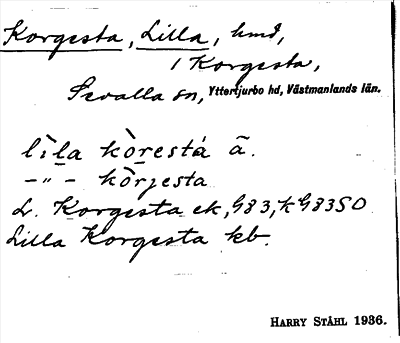 Korgesta, Lilla, hmd,
i Korgesta,
Sevalla sn, Yttertjurbo hd, Västmanlands län.
lìla kòrestá ä.
–"– kòrjesta
L. Korgesta ek, G83, k G83SO
Lilla Korgesta kb.
HARRY STÅHL 1936.